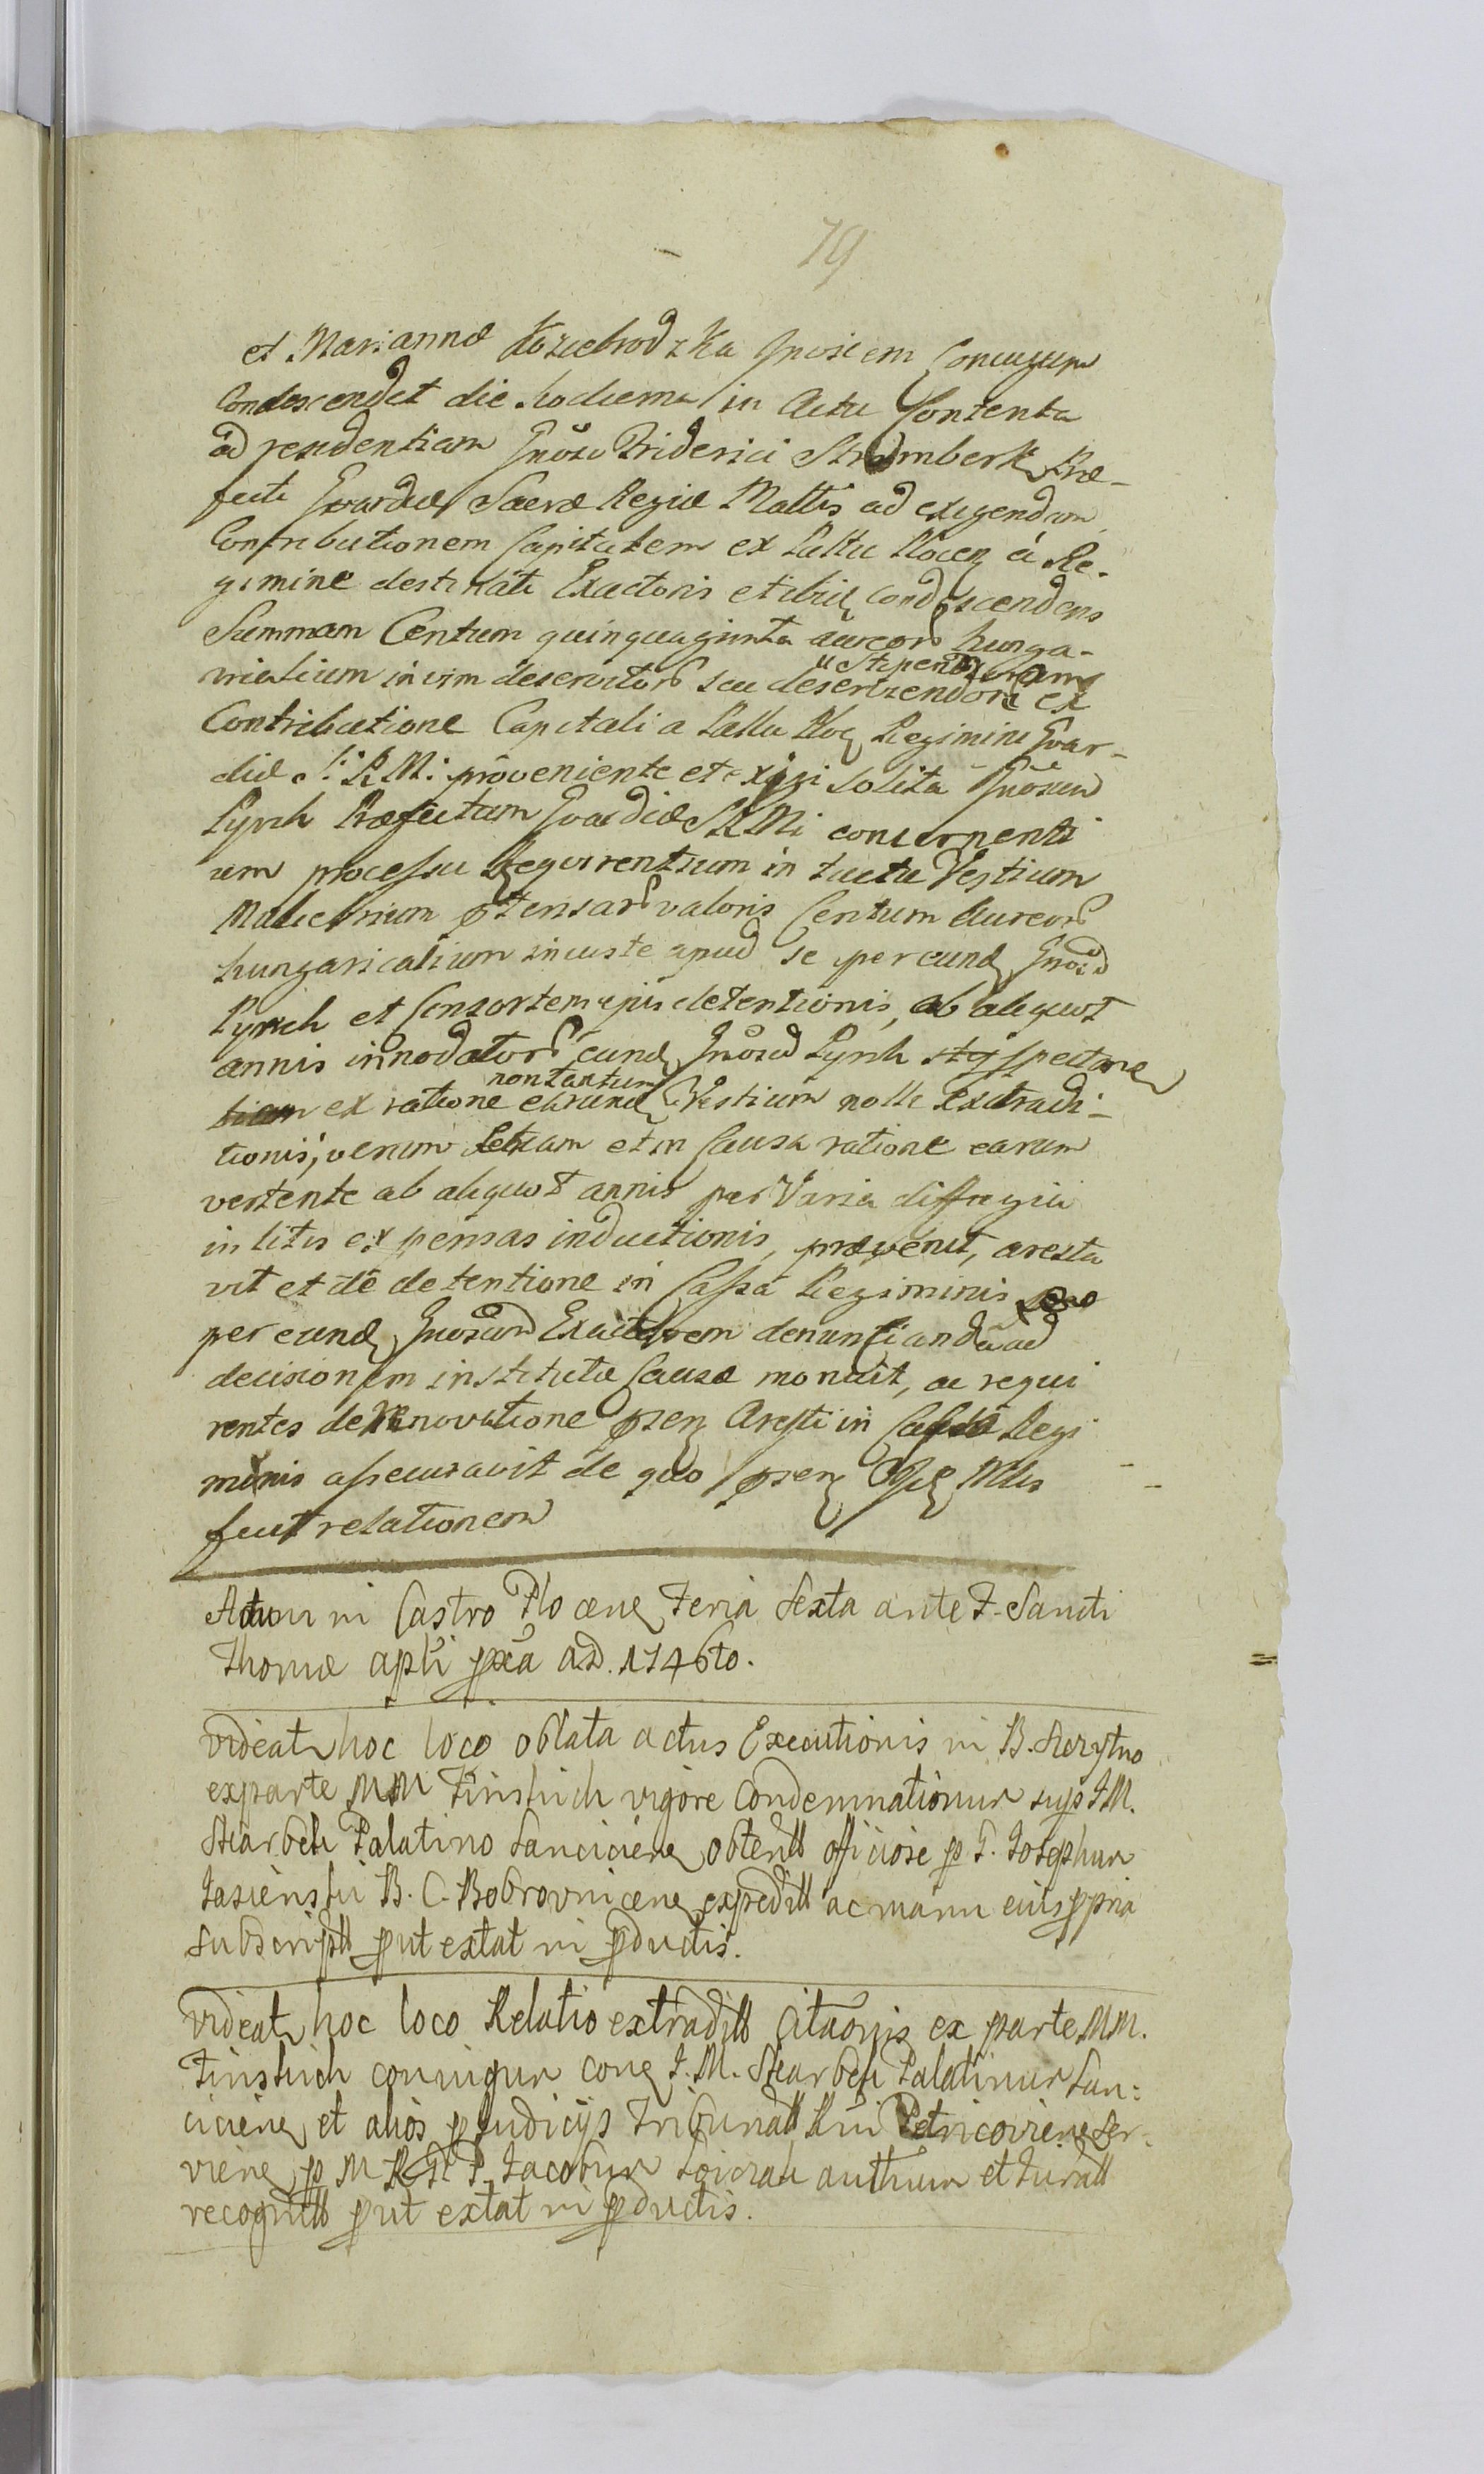 79
et Mariannæ Koziebrodzka Gnosiem Coniugum
Condescendet die hodierna in Actu Contenta
ad residentiam Gnosi Friderici Strumberk Præ-
fecti Gvardiæ Sacræ Regiæ Mattis ad exigendam
Contributionem Capitalem ex Pallu Plocen à Re-
gimine destinati Exactoris et ibid condescendens
Summam Centum quinquaginta aureor hunga-
ricalium in vim deservitor seu deserviendor Stipendiorum ex
Contributione Capitali a Pallu Ploc Regimini Gvar-
diæ S: R M: proveniente et exigi solita Gnosum
Pyrch Præfectum Gvardiæ SRMi concernenti
um processu Requirentium in luctu Vestium
Muliebrium prtensar valoris Centum Aureor
hungaricalium iniuste apud se per eund Gnosu
Pyrch et Consortem ejus detentionis, ab aliquot
annis innodator eund Gnosu Pyrch
ex ratione non tantum earund Vestium nolle extradi-
tionis, verum etiam et in Causa ratione earum
vertente ab aliquot annis per Varia diffugia
in litis expensas inductionis, prævenit, aresta
vit et de detentione in Cassa Regiminis
per eund Gnosum Exactorem denuntianda ad
decisionem institutæ Causæ monuit, ac requi
rentes de renovatione prsen Aresti in Cassa Regi
minis assecuravit de quo prsen Mlis
fecit relationem
Actum in Castro Plocen Feria Sexta ante F. Sancti
Thomæ apli pxa A.D. 1746to.
Videatr hoc loco oblata actus Executionis in B.
ex parte MM Finskich vigore Condemnationum sup I M.
Skarbek Palatino Lanciciens obtent officiose p G. Josephum
Jasienski B. C. Bobrovnicen expedit ac manu eius ppria
subscript put extat in pductis.
Videatr hoc loco Relatio extradit Citaonis ex parte MM.
Finskich coniugum con I. M. Skarbek Palatinum Lan:
ciciens et alios p Judicijs Tribunal Rni Petricoviens Ser-
viens p M Jacobum authum et Jurat
recognit put extat in pductis.